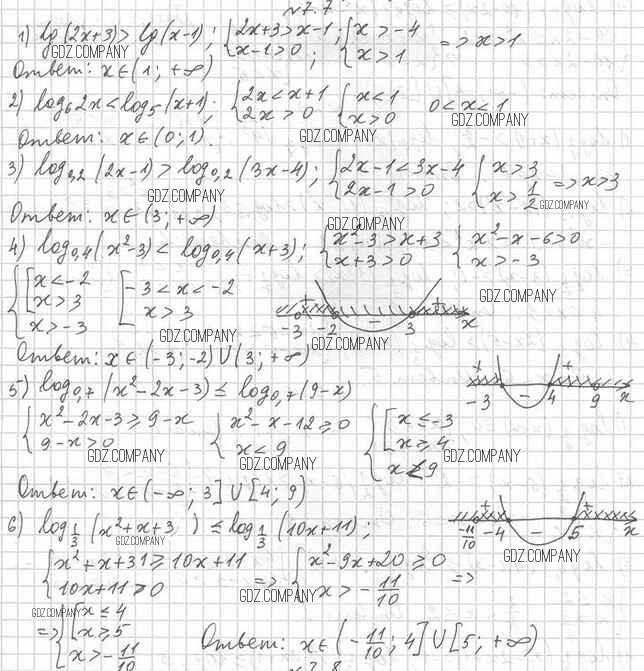 №7.7
1) lg(2x+3)>lg(x-1); {2x+3>x-1; x-1>0; {x>-4 x>1 => x>1
GDZ.COMPANY
Ответ: x∈(1; +∞)
2) log₆2x<log₅(x+1); {2x<x+1 2x>0 {x<1 x>0 0<x<1
GDZ.COMPANY
GDZ.COMPANY
Ответ: x∈(0;1).
3) log₀,₂(2x-1)>log₀,₂(3x-4); {2x-1<3x-4 2x-1>0 {x>3 x>1/2 => x>3
GDZ.COMPANY GDZ.COMPANY
Ответ: x∈(3; +∞)
GDZ.COMPANY
4) log₀,₄(x²-3)<log₀,₄(x+3); {x²-3>x+3 x+3>0 {x²-x-6>0 x>-3
{[x<-2 x>3 x>-3 [-3<x<-2 x>3
GDZ.COMPANY
+ - + -3 -2 3 x
GDZ.COMPANY GDZ.COMPANY
Ответ: x∈(-3;-2)∪(3; +∞)
5) log₀,₇(x²-2x-3)≤log₀,₇(9-x)
+ - + -3 4 9 x
{x²-2x-3≥9-x 9-x>0 {x²-x-12≥0 x<9 {[x≤-3 x≥4 x<9
GDZ.COMPANY GDZ.COMPANY GDZ.COMPANY
Ответ: x∈(-∞; 3]∪[4; 9)
6) log₁/₃(x²+x+3 )≤log₁/₃(10x+11);
GDZ.COMPANY
+ - + -11/10 -4 5 x
GDZ.COMPANY
{x²+x+31≥10x+11 10x+11>0 => {x²-9x+20≥0 x>-11/10 =>
GDZ.COMPANY GDZ.COMPANY
=> {[x≤4 x≥5 x>-11/10
Ответ: x∈(-11/10; 4]∪[5; +∞)
№7.8